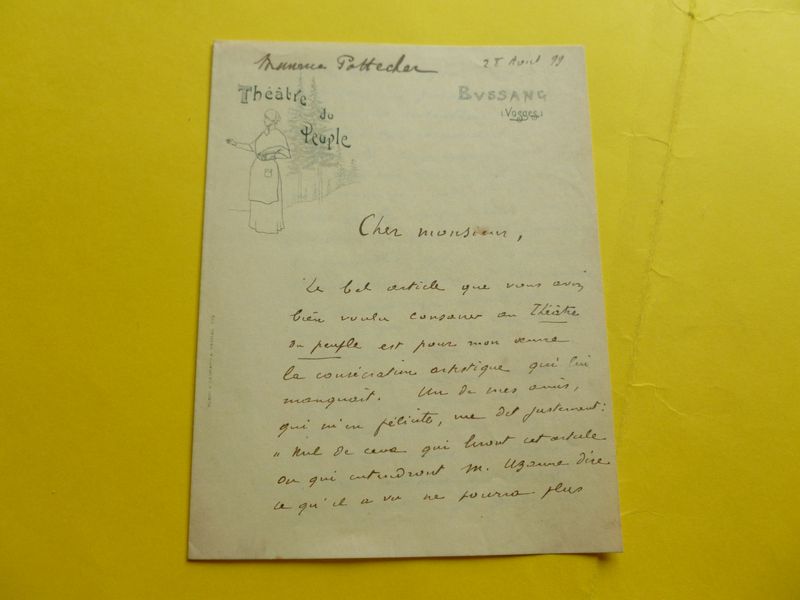 Maurice Pottecher
28 Avril 99
Théâtre
du
Peuple
BVSSANG
(Vosges)
Cher monsieur,
Le bel article que vous avez
bien voulu consacrer au Théâtre
du peuple est pour mon œuvre
la consécration artistique qui lui
manquait. Un de mes amis,
qui m'en félicite, me dit justement:
"Nul de ceux qui liront cet article
ou qui entendront M. Uzanne dire
ce qu'il a vu ne pourra plus